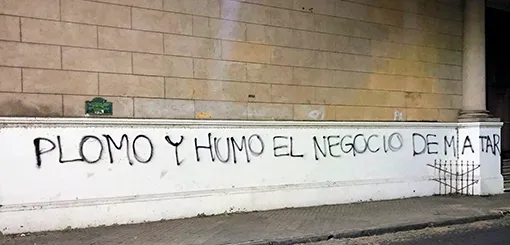 PLOMO Y HUMO EL NEGOCIO DE MATAR